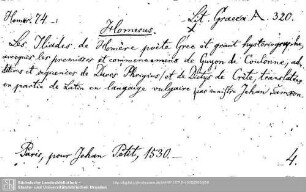 Homer. 74.
Lit. Graeca A. 320.
Homerus.
Les Iliades de Homère poète Grec et grant hystoriographe,
avecques les premisses et commencemens de Guyon de Coulonne, ad-
ditions et sequences de Dares Phrygius, et de Dictys de Crète, translatées
en partie de Latin en langaige vulgaire par maistre Jehan Samxon.
Paris, pour Jehan Petit, 1530.
4.